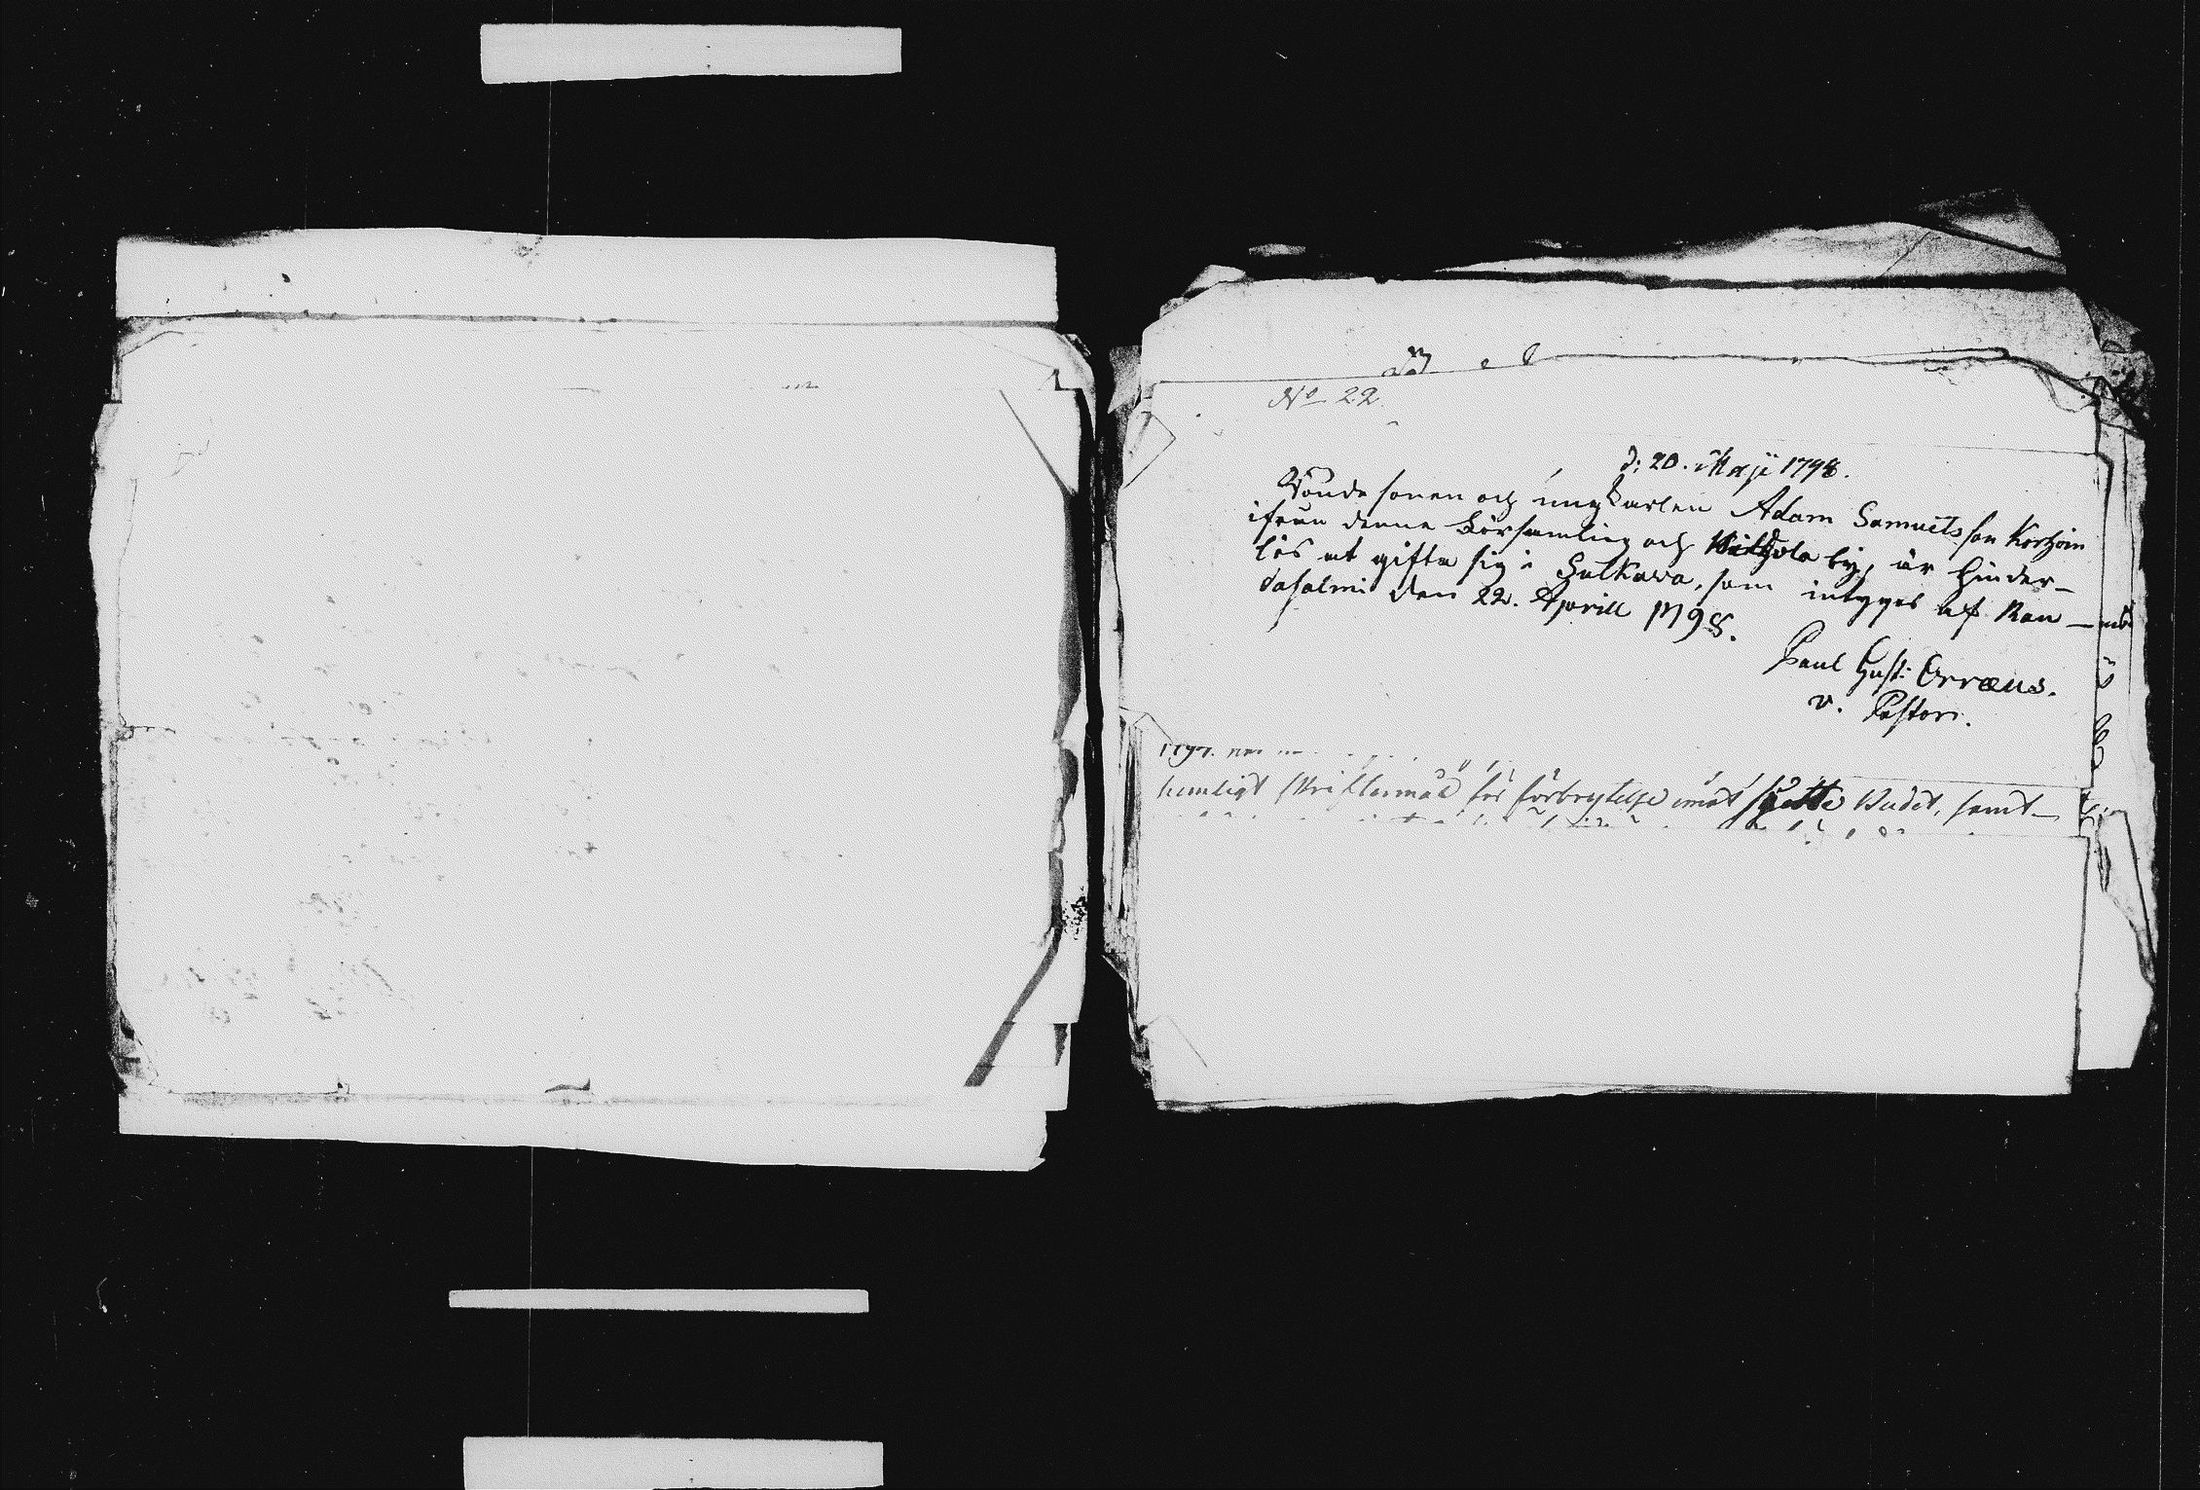 No 22
d: 20. Maji 1798.
Bonde sonen och ungkarlen Adam Samuels son Korhoin
ifrån denne Församling och by, är hinder-
lös at gifta sig i Sulkava, som intygas af Ran-
dasalmi den 22. Aprill 1798.
Paul Gust: Orræus.
v. Pastor.
1797.
hemligt skriftermål för förbrytelse emot sjette Budet, samt